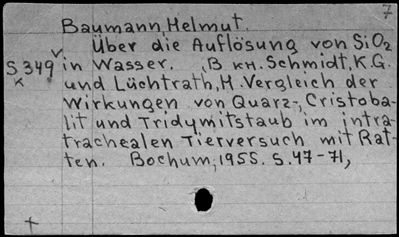 7
Baumann, Helmut
Über die Auflösung von SiO2
S 349 in Wasser. (В кн. Schmidt, K.G.
к
und Lüchtrath, H. Vergleich der
Wirkungen von Quarz-, Cristoba-
lit und Tridymitstaub im intra-
trachealen Tierversuch mit Rat-
ten. Bochum, 1955. S. 47-71,
+